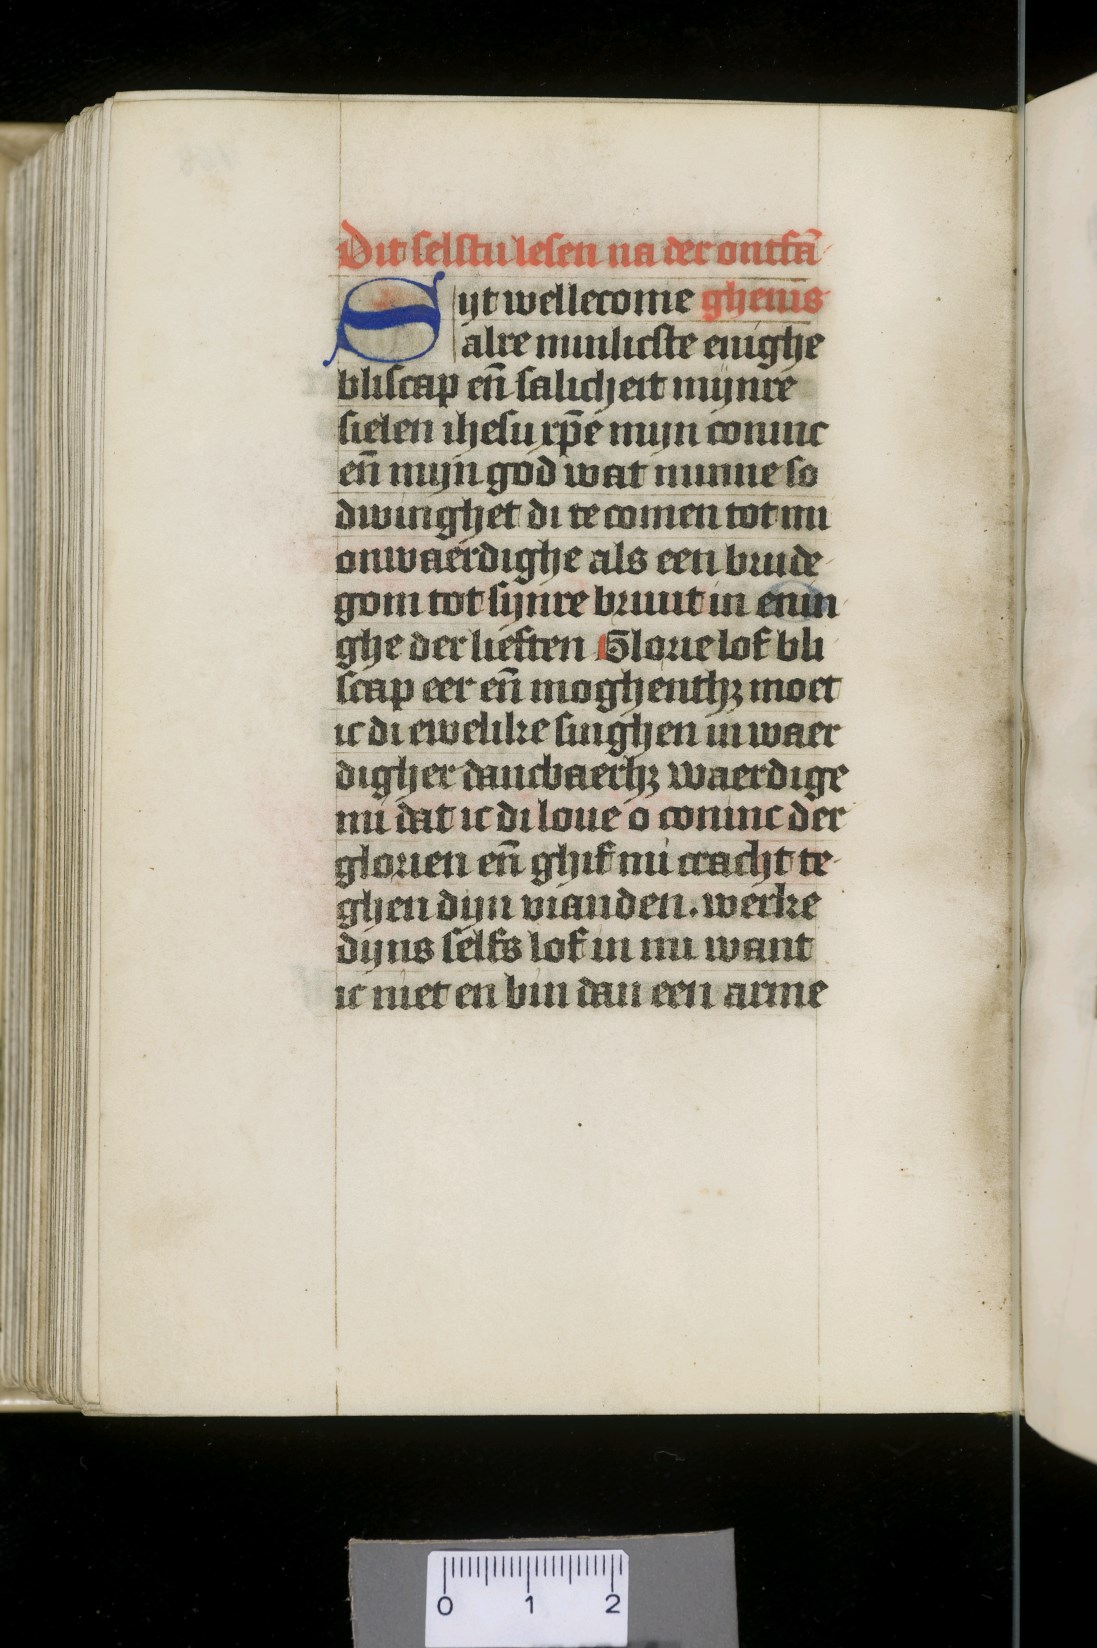 Dit selstu lesen na der ontfā-
Syt wellecome ghenis
alre minlicste enighe
bliscap en̄ salicheit mijnre
sielen ihesu xp̄e mijn coninc
en̄ mijn god wat minne so
dwinghet di te comen tot mi
onwaerdighe als een brude-
gom tot sijnre bruut in enin
ghe der lieften Glorie lof bli
scap eer en̄ moghenthꝫ moet
ic di ewelike singhen in waer
digher dancbaerhꝫ waerdige
mi dat ic di loue o coninc der
glorien en̄ ghif mi cracht te-
ghen dijn vianden. werke
dijns selfs lof in mi want
ic niet en bin dan een arme
0 1 2